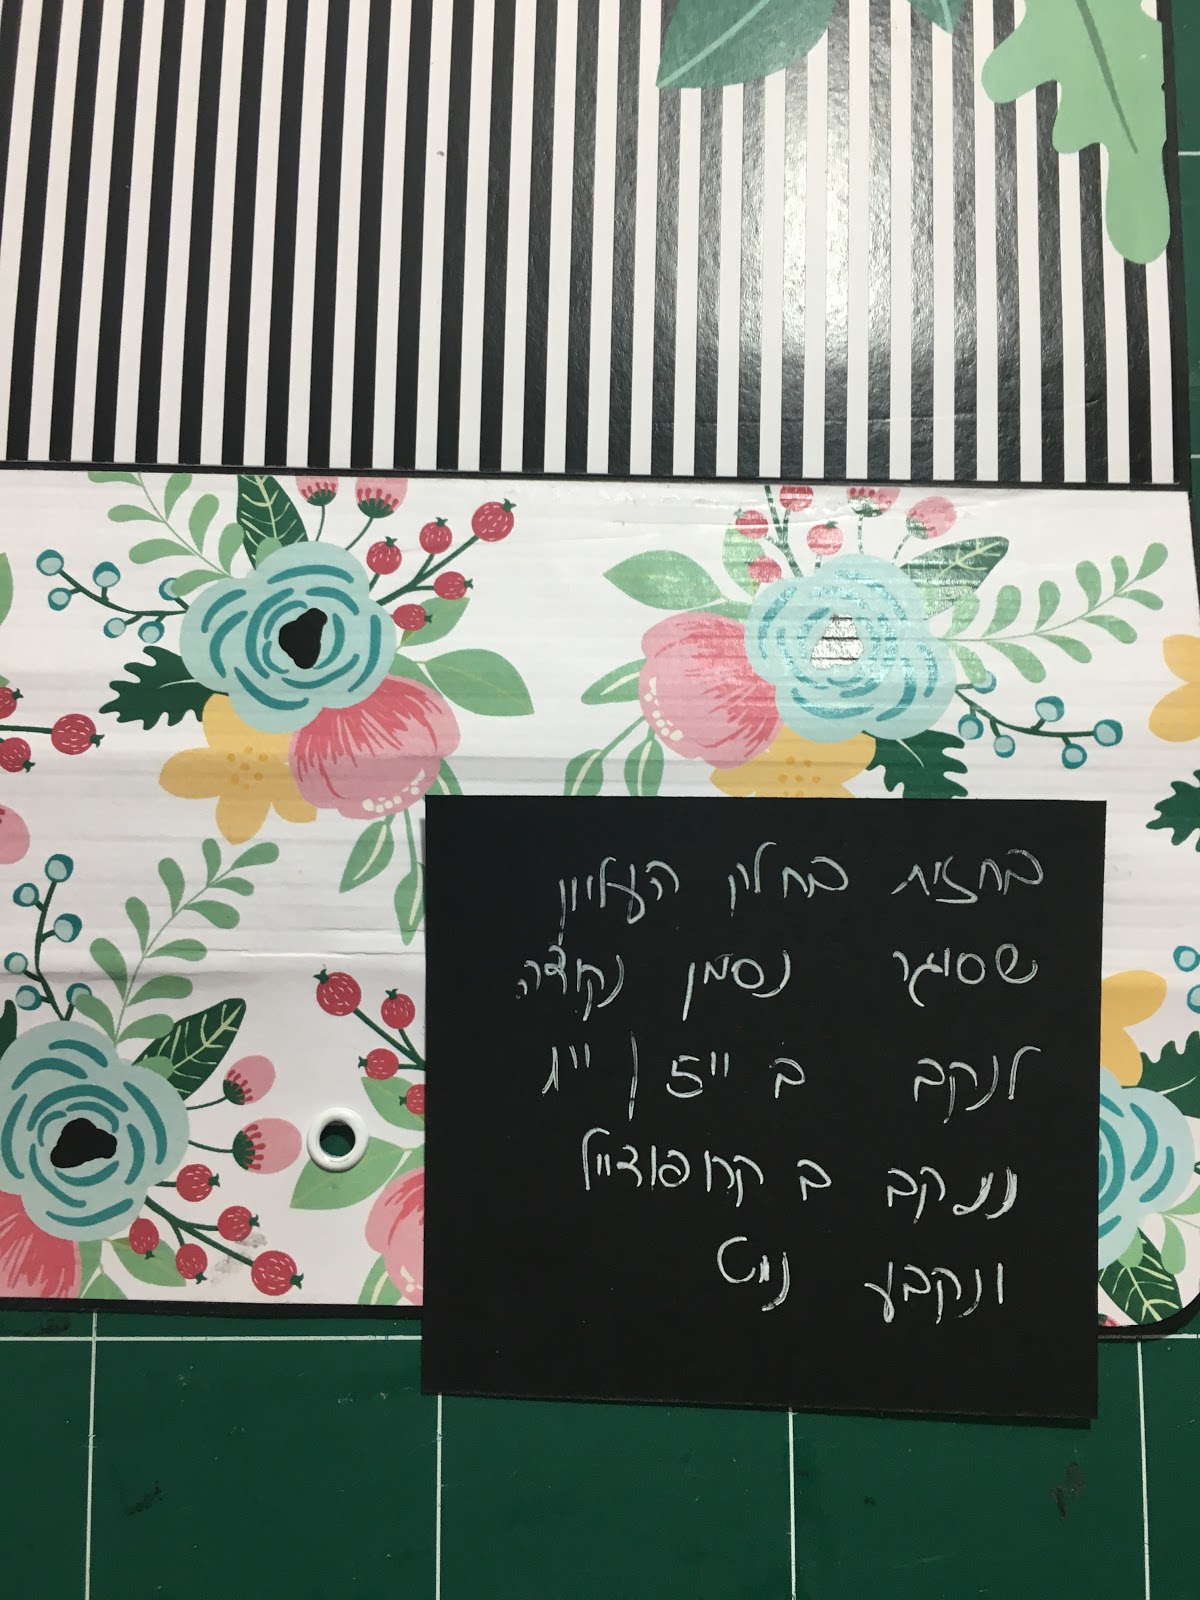 בחזית בחלק העליון
שסוגר נסמן נקודה
לנקב ב
וננקב ב קרופודייל
ונקבע ניט